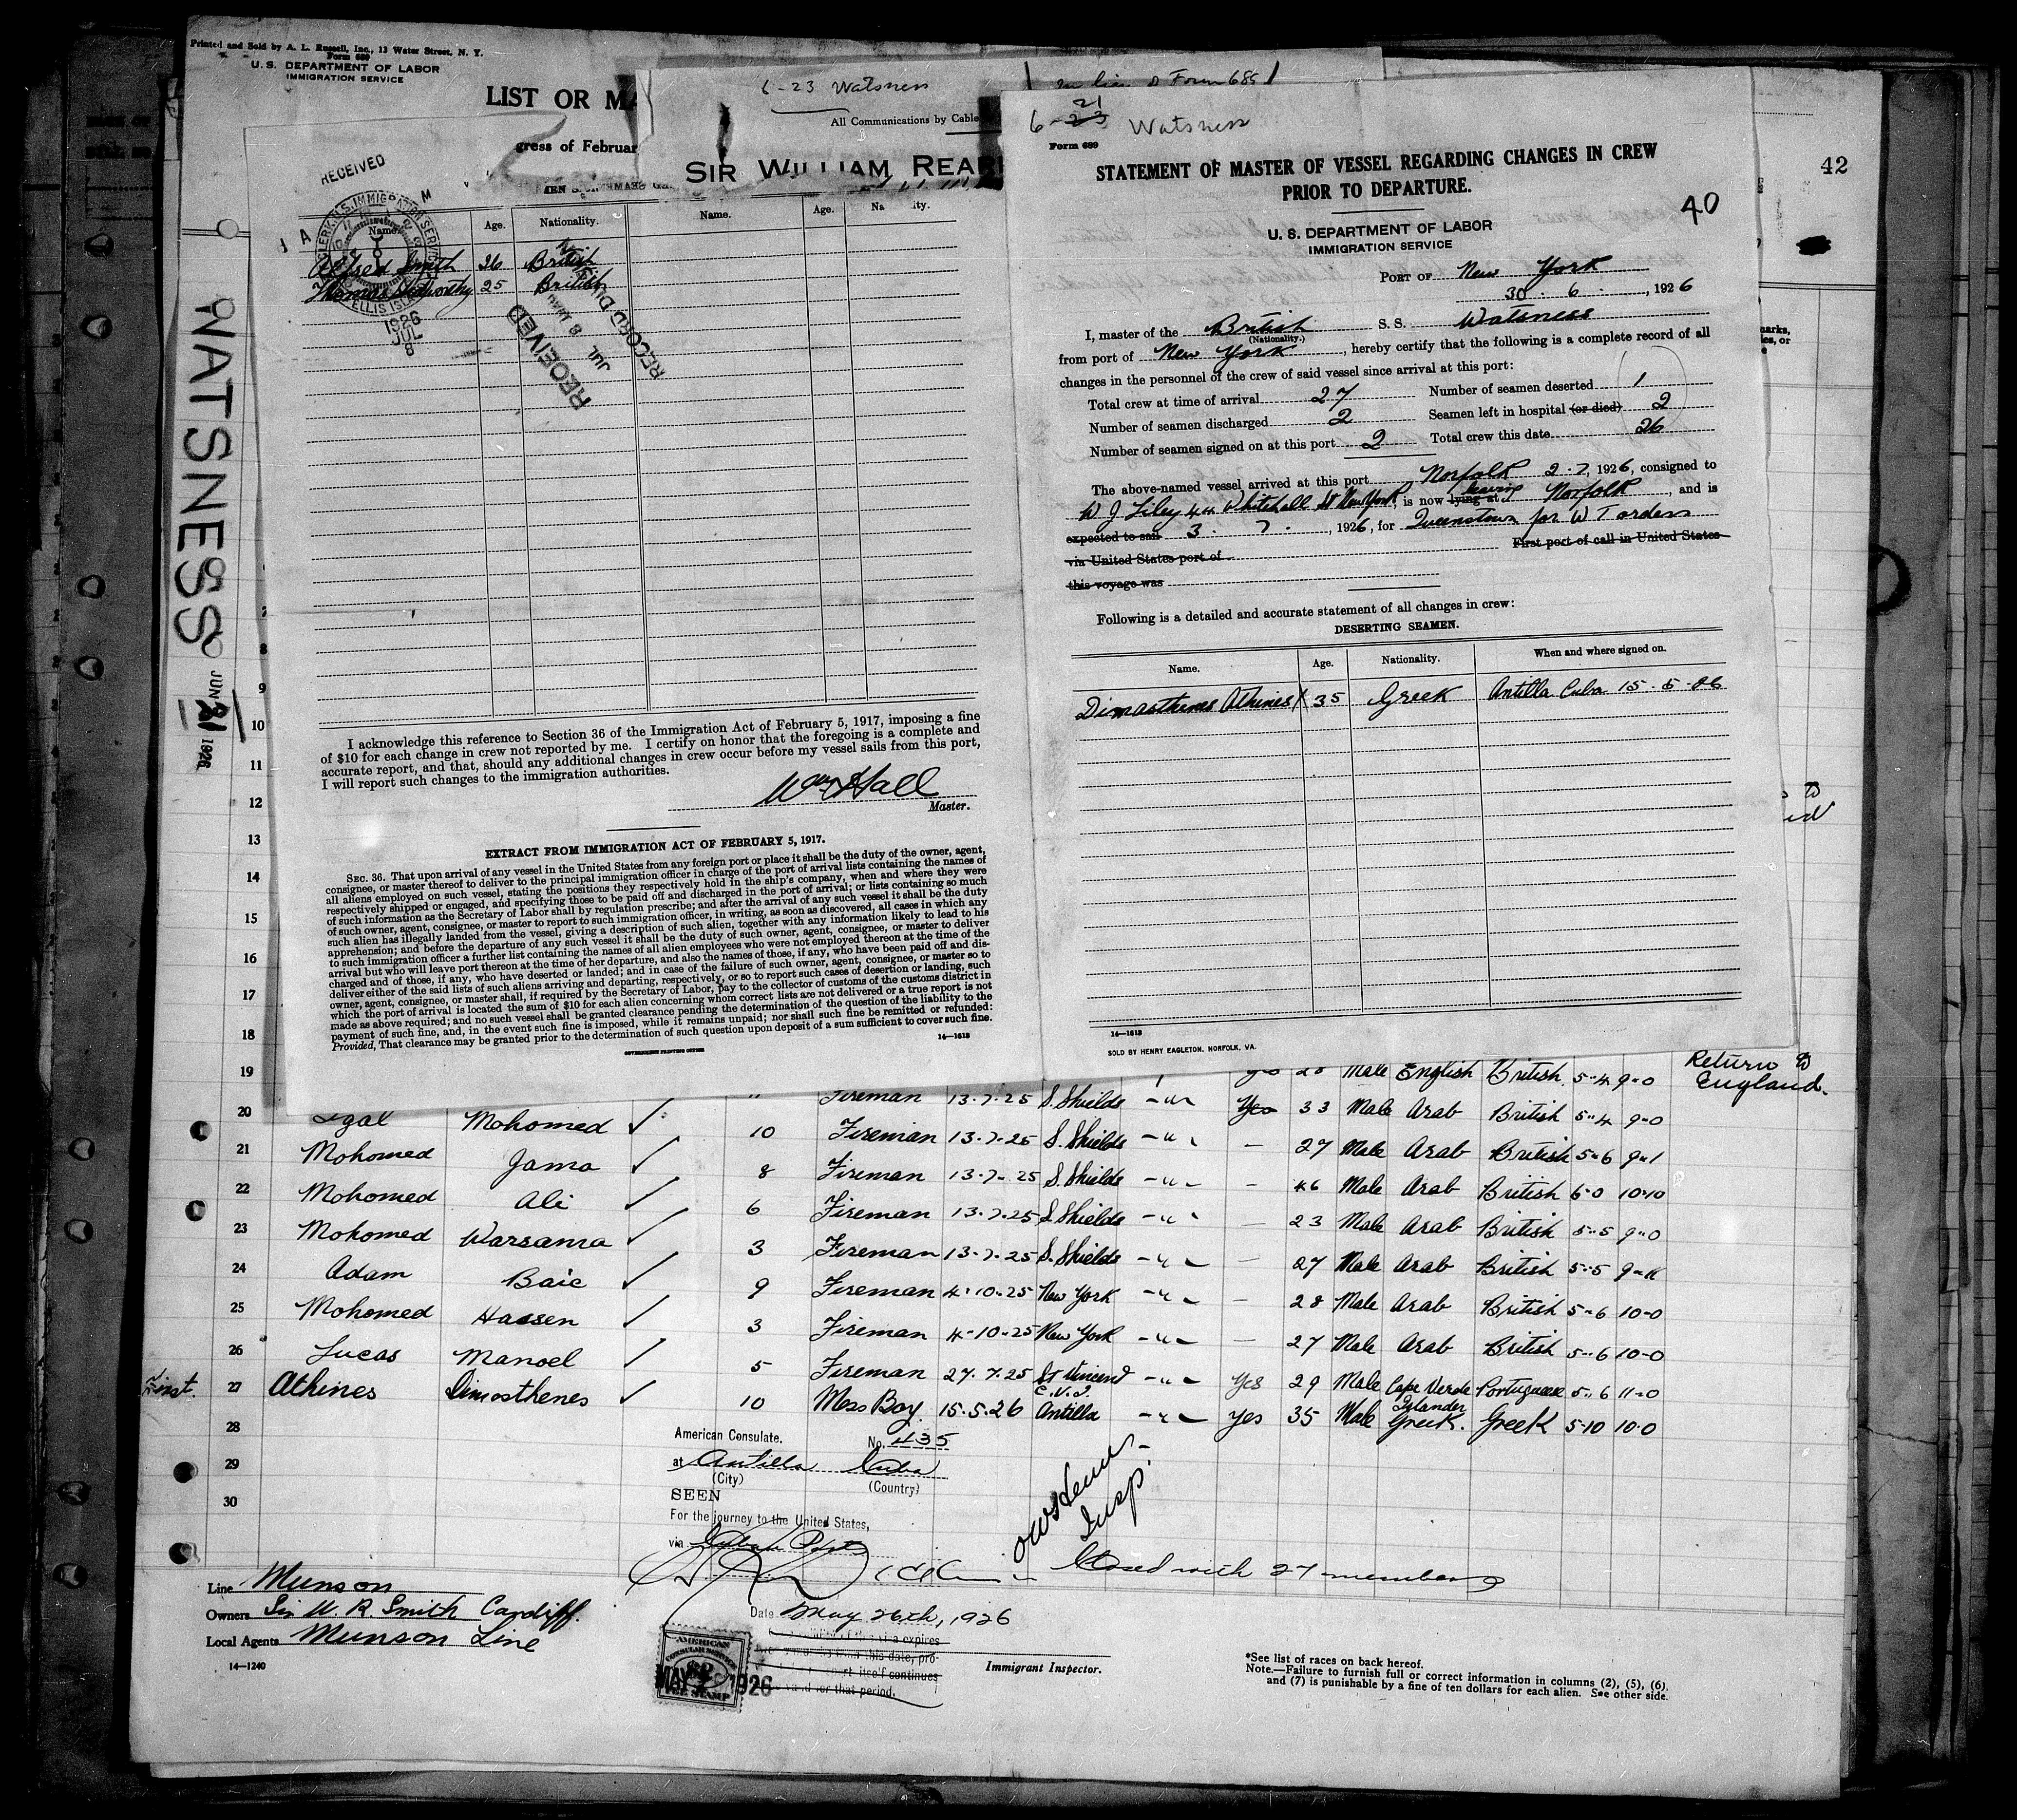 Printed and Sold by A. L. Russell, Inc., 13 Water Street, N. Y.
Form 689
U. S. DEPARTMENT OF LABOR
IMMIGRATION SERVICE
LIST OR MA
gress of Februar
6-23 Watsness
All Communications by Cable
SIR WILLIAM REAR
In lieu of Form 689
42
WATSNESS
JUN 21 1926
RECEIVED
U.S. IMMIGRATION SERVICE
ELLIS ISL
1926
JUL
8
RECEIVED
JUL 8 1926
RECORD DIV
Name. Age. Nationality. Name. Age. Na ity.
Alfred Smith 26 British
Thomas 25 British
I acknowledge this reference to Section 36 of the Immigration Act of February 5, 1917, imposing a fine
of $10 for each change in crew not reported by me. I certify on honor that the foregoing is a complete and
accurate report, and that, should any additional changes in crew occur before my vessel sails from this port,
I will report such changes to the immigration authorities.
Wm Hall
Master.
EXTRACT FROM IMMIGRATION ACT OF FEBRUARY 5, 1917.
SEC. 36. That upon arrival of any vessel in the United States from any foreign port or place it shall be the duty of the owner, agent,
consignee, or master thereof to deliver to the principal immigration officer in charge of the port of arrival lists containing the names of
all aliens employed on such vessel, stating the positions they respectively hold in the ship's company, when and where they were
respectively shipped or engaged, and specifying those to be paid off and discharged in the port of arrival; or lists containing so much
of such information as the Secretary of Labor shall by regulation prescribe; and after the arrival of any such vessel it shall be the duty
of such owner, agent, consignee, or master to report to such immigration officer, in writing, as soon as discovered, all cases in which any
such alien has illegally landed from the vessel, giving a description of such alien, together with any information likely to lead to his
apprehension; and before the departure of any such vessel it shall be the duty of such owner, agent, consignee, or master to deliver
to such immigration officer a further list containing the names of all alien employees who were not employed thereon at the time of the
arrival but who will leave port thereon at the time of her departure, and also the names of those, if any, who have been paid off and dis-
charged and of those, if any, who have deserted or landed; and in case of the failure of such owner, agent, consignee, or master so to
deliver either of the said lists of such aliens arriving and departing, respectively, or so to report such cases of desertion or landing, such
owner, agent, consignee, or master shall, if required by the Secretary of Labor, pay to the collector of customs of the customs district in
which the port of arrival is located the sum of $10 for each alien concerning whom correct lists are not delivered or a true report is not
made as above required; and no such vessel shall be granted clearance pending the determination of the question of the liability to the
payment of such fine, and, in the event such fine is imposed, while it remains unpaid; nor shall such fine be remitted or refunded:
Provided, That clearance may be granted prior to the determination of such question upon deposit of a sum sufficient to cover such fine.
GOVERNMENT PRINTING OFFICE
14—1613
6-23 21 Watsness
Form 689
STATEMENT OF MASTER OF VESSEL REGARDING CHANGES IN CREW
PRIOR TO DEPARTURE.
40
U. S. DEPARTMENT OF LABOR
IMMIGRATION SERVICE
PORT OF New York
30 . 6 . , 1926
I, master of the British S. S. Watsness
(Nationality.)
from port of New York, hereby certify that the following is a complete record of all
changes in the personnel of the crew of said vessel since arrival at this port:
Total crew at time of arrival 27 Number of seamen deserted 1
Number of seamen discharged 2 Seamen left in hospital (or died) 2
Number of seamen signed on at this port 2 Total crew this date 26
The above-named vessel arrived at this port Norfolk 2.7, 1926, consigned to
W J Liley 44 Whitehall St New York, is now lying at leaving Norfolk, and is
expected to sail 3 . 7 . , 1926, for Queenstown for W T orders
via United States port of First port of call in United States
this voyage was
Following is a detailed and accurate statement of all changes in crew:
DESERTING SEAMEN.
Name. Age. Nationality. When and where signed on.
Dimasthenes Athines 35 Greek Antilla Cuba 15.5.26
14—1613
SOLD BY HENRY EAGLETON, NORFOLK, VA.
arks,
es, or
7
8
9
10
11
12
13
14
15
16
17
18
19 28 Male English British 5-4 9-0 Return to England.
Fireman 13.7.25 S. Shields -"- Yes 33 Male Arab British 5-4 9-0
20 Egal Mohomed ✓ 10 Fireman 13.7.25 S. Shields -"- - 27 Male Arab British 5-6 9-1
21 Mohomed Jama ✓ 8 Fireman 13.7.25 S. Shields -"- - 46 Male Arab British 6-0 10-10
22 Mohomed Ali ✓ 6 Fireman 13.7.25 S. Shields -"- - 23 Male Arab British 5-5 9-0
23 Mohomed Warsama ✓ 3 Fireman 13.7.25 S. Shields -"- - 27 Male Arab British 5-5 9-11
24 Adam Baic ✓ 9 Fireman 4.10.25 New York -"- - 28 Male Arab British 5-6 10-0
25 Mohomed Hassen ✓ 3 Fireman 4-10-25 New York -"- - 27 Male Arab British 5-6 10-0
26 Lucas Manoel ✓ 5 Fireman 27.7.25 St Vincent C.V.I. -"- Yes 29 Male Cape Verde Islander Portuguese 5-6 11-0
27 Athines Dimosthenes ✓ 10 Mess Boy 15.5.26 Antilla -"- Yes 35 Male Greek. Greek 5-10 10-0
28
29
30
American Consulate. No. 435
at Antilla Cuba
(City) (Country)
SEEN
For the journey to the United States,
via
Insp.
Closed with 27 members
Date May 26th, 1926
expires
from this date, pro-
itself continues
valid for that period.
AMERICAN
CONSULAR SERVICE
FEE STAMP
MAY 1926
Immigrant Inspector.
Line Munson
Owners Sir W. R. Smith Cardiff.
Local Agents Munson Line
14—1240
*See list of races on back hereof.
Note.—Failure to furnish full or correct information in columns (2), (5), (6),
and (7) is punishable by a fine of ten dollars for each alien. See other side.